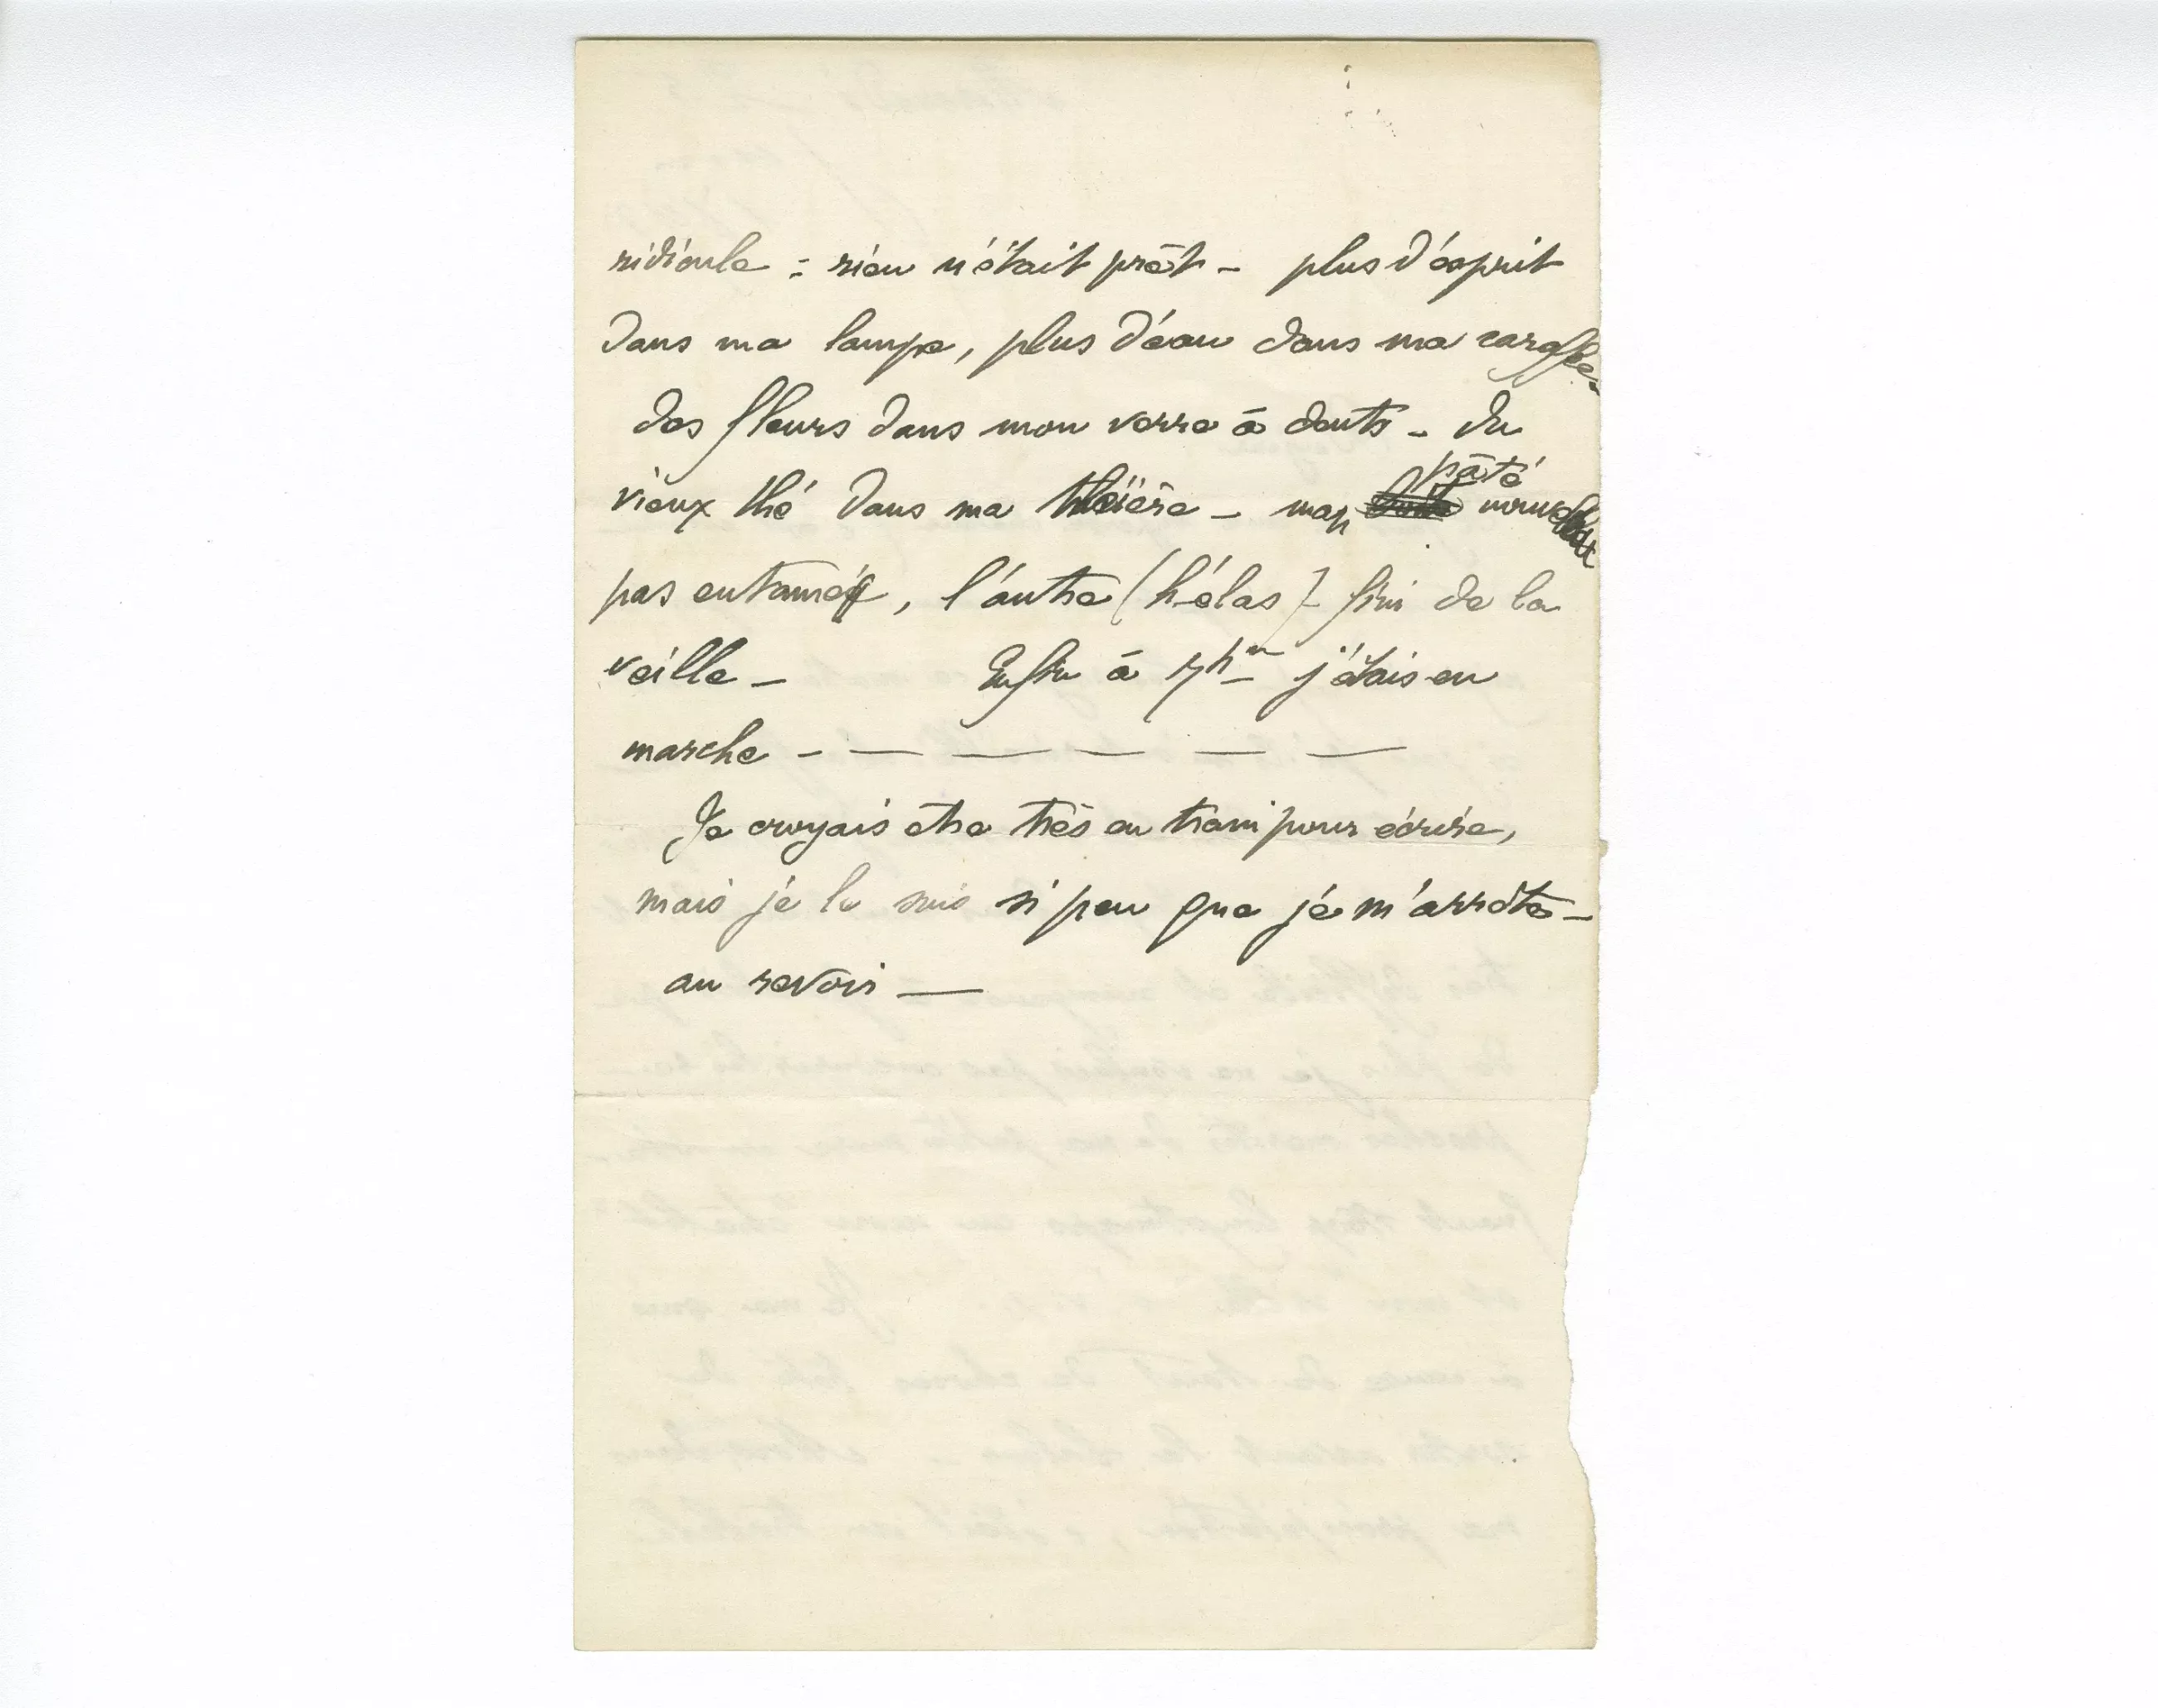 ridicule : rien n'était prêt – plus d'esprit
dans ma lampe, plus d'eau dans ma caraffe –
des fleurs dans mon verre à dents – du
vieux thé dans ma théière – mon pâté nouveau
pas entamé, l'autre (hélas) – fini de la
veille – Enfin à 7h j'étais en
marche – — — — — —
Je croyais être très en train pour écrire,
mais je le suis si peu que je m'arrête –
au revoir —